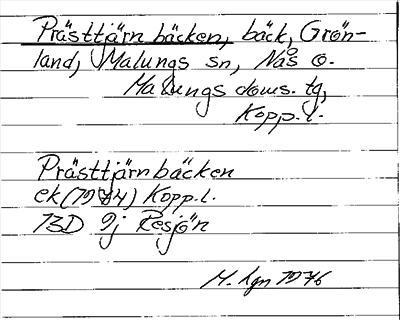 Prästtjärnbäcken, bäck, Grön-
land, Malungs sn, Nås o.
Malungs doms. tg,
Kopp. l.
Prästtjärnbäcken
ek (1974) Kopp. l.
13D 9j Resjön
M. hgn 1976